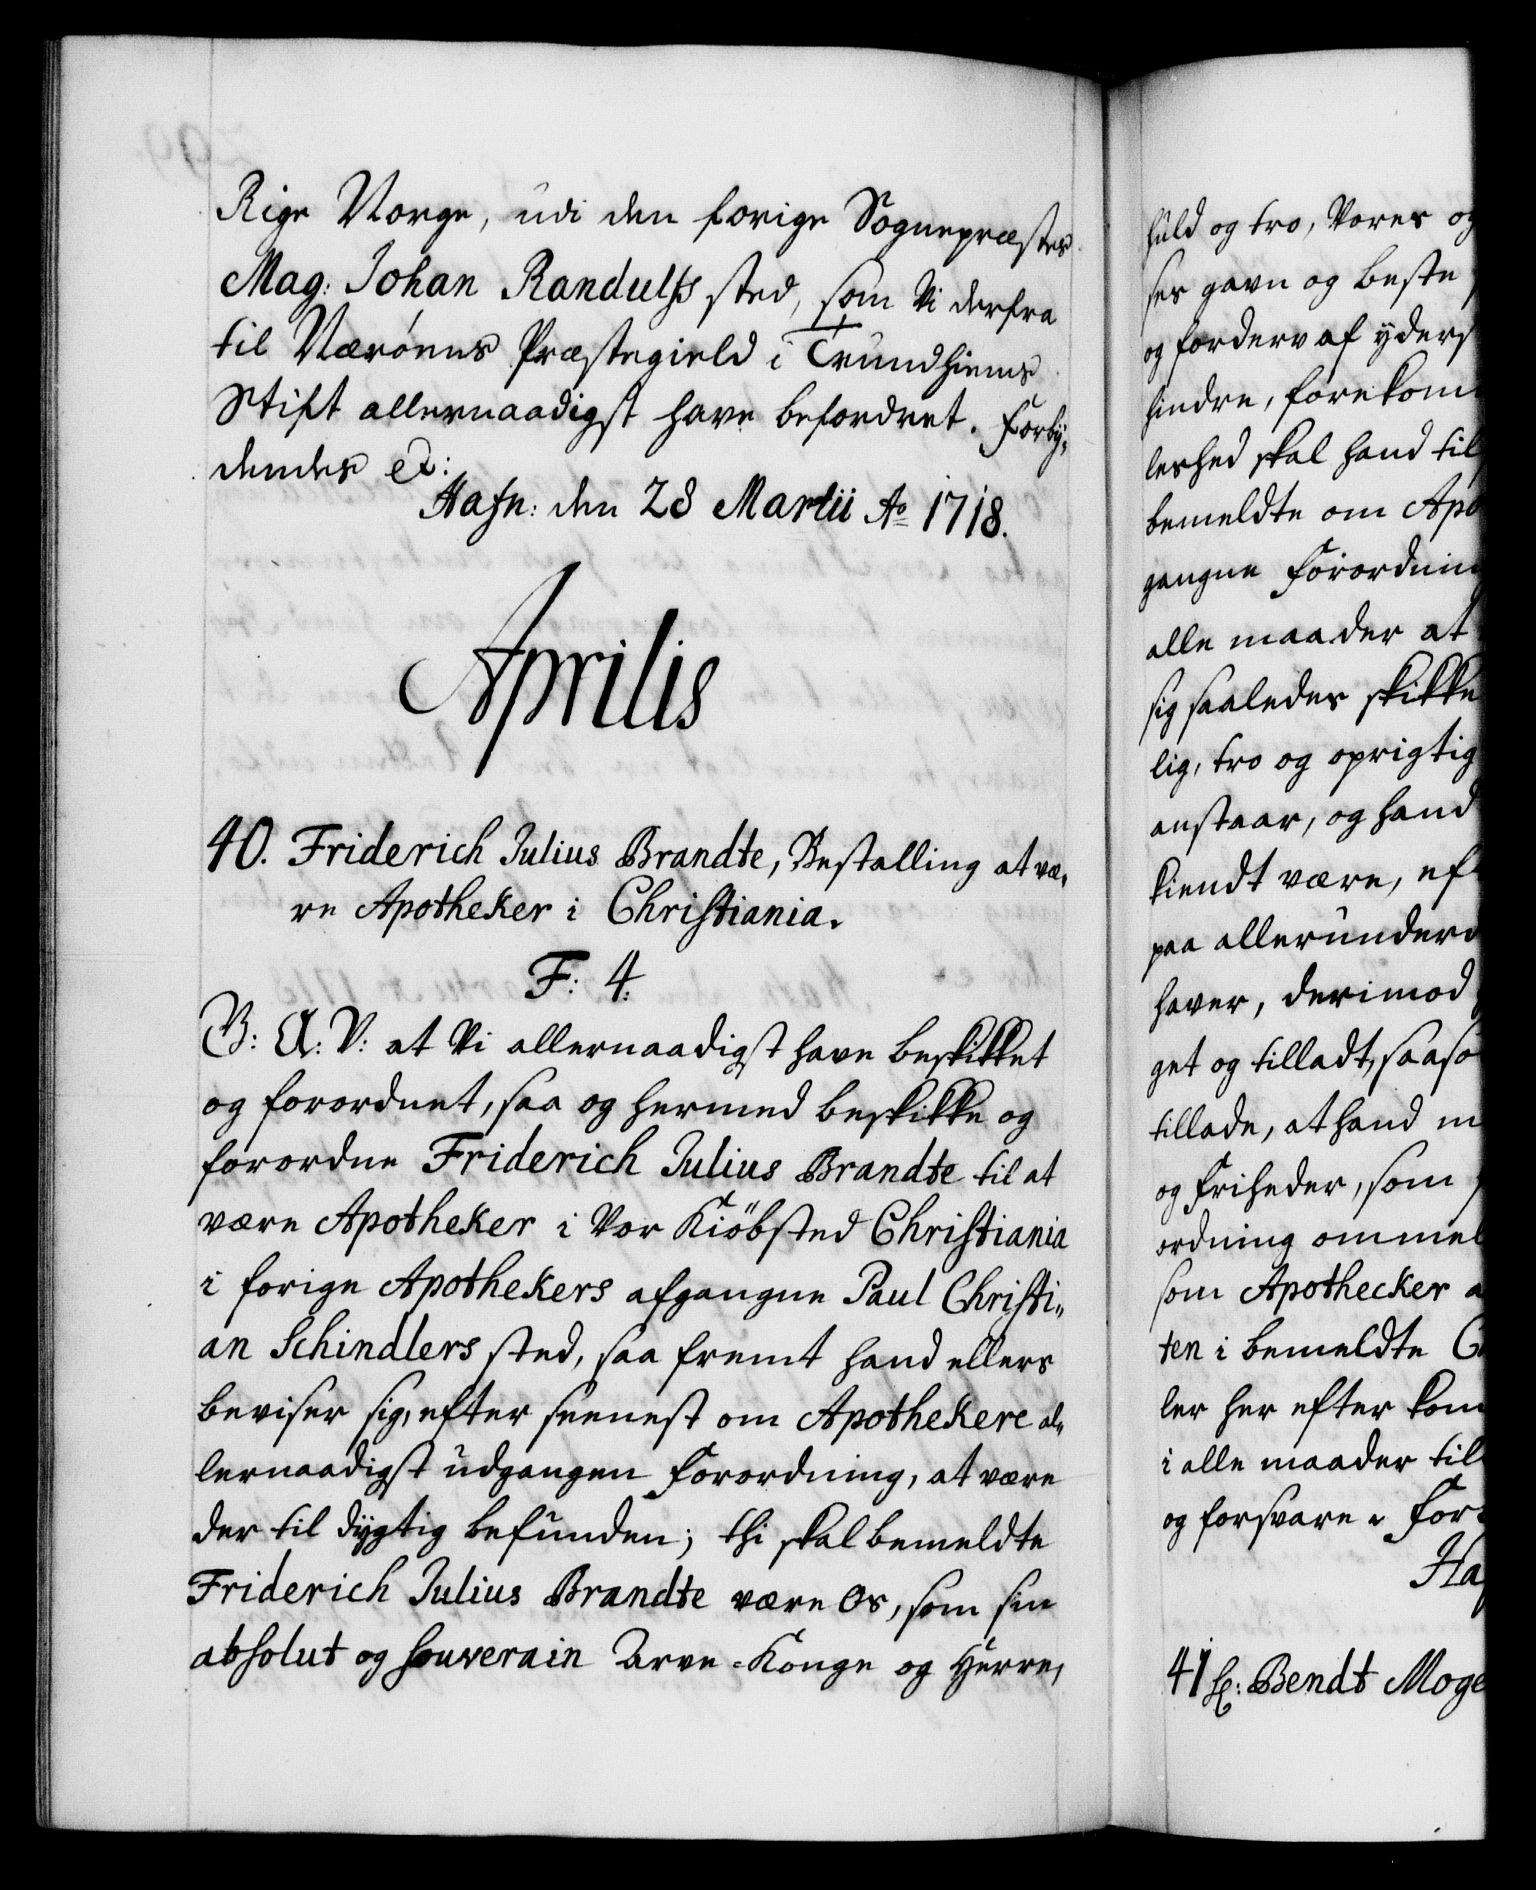 Rige Norge, udi den forige Sognepræstes
Mag: Johan Randulfs sted, som Vi derfra
til Nærøens Præstegield i Trundhiems
Stift allernaadigst have befordret. Forby,
dendes etc:
Hafn: den 28 Martii Ao 1718.
Aprilis
40. Friderich Julius Brandte, Bestalling at væ,
re Apotheker i Christiania.
F: 4.
G: A: V: at Vi allernaadigst have beskikket
og forordnet, saa og hermed beskikke og
forordne Friderich Julius Brandte til at
være Apotheker i Vor Kiöbsted Christiania
i forige Apothekers afgangne Paul Christi„
an Schindlers sted, saa fremt hand ellers
beviser sig, efter seenest om Apothekere al„
lernaadigst udgangen Forordning, at være
der til dygtig befunden; thi skal bemeldte
Friderich Julius Brandte være Os, som sin
absolut og souverain Arve-Konge og Herre,
huld og tro, Vores og
ses gavn og beste
og forderv af yders
hindre, forekom
leshed skal hand til
bemeldte om Apo
gangne Forordnin
alle maader at
sig saaledes skikke
lig, tro og oprigtig
anstaar, og hand
kiendt være, ef
paa allerunderd
haver, derimod
get og tilladt, saaso
tillade, at hand m
og friheder, som
ordning ommel
som Apothecker a
ten i bemeldte C
ler her efter kom
i alle maader til
og forsvare. For
Haf
41 Hr: Bendt Moge